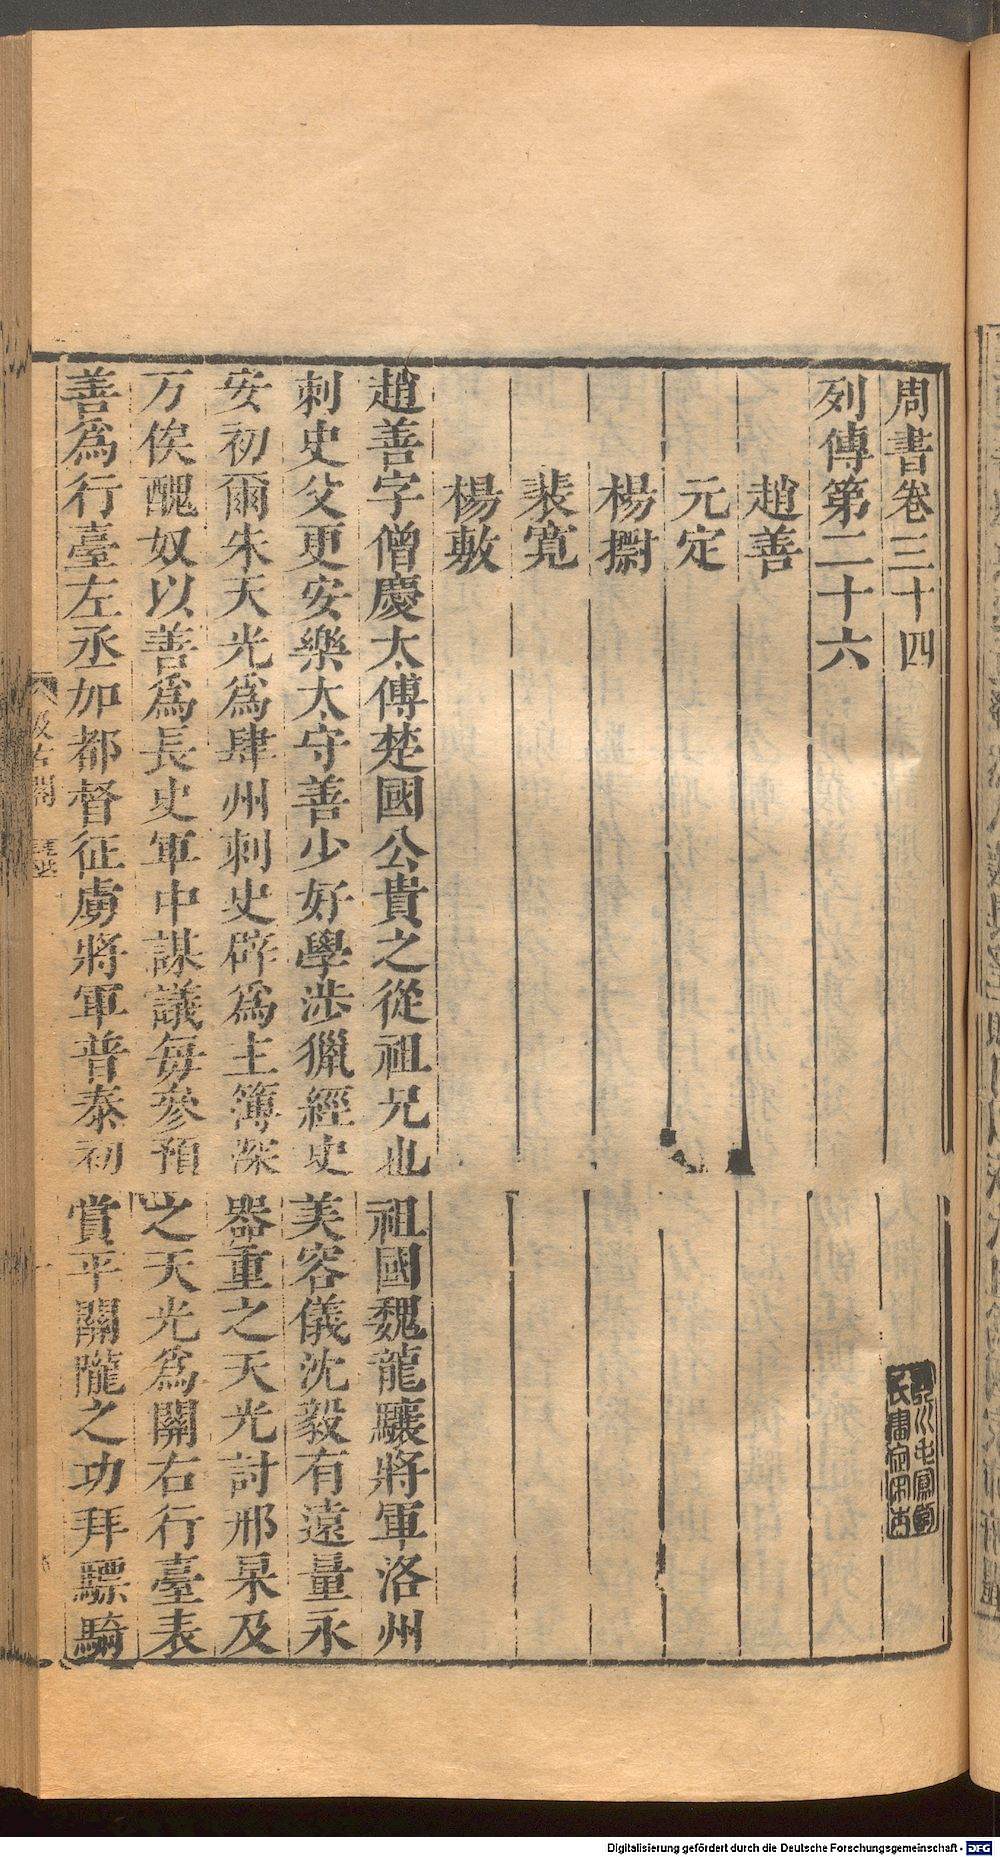 周書卷三十四
列傳第二十六
趙善
元定
楊㩉
裴寬
楊敷
趙善字僧慶太傅楚國公貴之從祖兄也祖國魏龍驤將軍洛州
刺史父更安樂太守善少好學涉獵經史美容儀沈毅有遠量永
安初爾朱天光爲肆州刺史辟爲主簿深器重之天光討邢杲及
万俟醜奴以善爲長史軍中謀議每參預之天光爲關右行臺表
善爲行臺左丞加都督征虜將軍普泰初賞平關隴之功拜驃騎
汲古閣
Digitalisierung gefördert durch die Deutsche Forschungsgemeinschaft - DFG